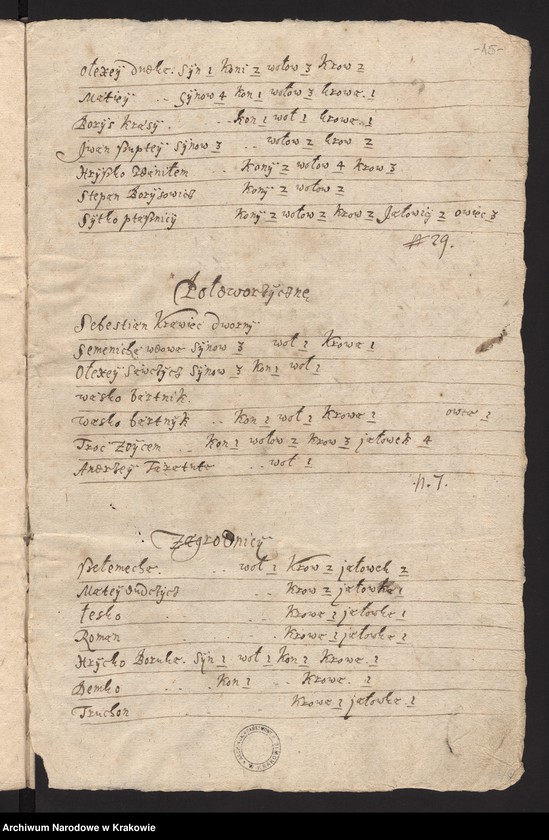 -15-
Olexey Dudka. Syn 1 Koni 2 wołow 3 Krow 2
Matiey .. Synow 4 Kon 1 wołow 3 krowa. 1
Borys Krasy . .. Kon 1 woł 1 krowa. 1
Iwan Puptey Synow 3 .. wołow 2 krow 2
Hryśko .. Kony 2 wołow 4 Krow 3
Stepan Borysowicz Kony 2 wołow 2
Sytko Kony 2 wołow 2 Krow 2 Jałowic 2 owiec 3
# 29.
Połdworzyczne
Sebestian Krawiec dworny
Semenicha wdowa Synow 3 woł 1 Krowa 1
Olexey Synow 3 Kon 1 woł 1
wasko bartnik.
wasko bartnyk .. Kon 1 woł 1 Krowa 1 owca 1
Troc .. Kon 1 wołow 2 Krow 3 jałowek 4
Andrzey Taratuta .. woł 1
n. 7.
Zagrodnicy
.. woł 1 Krow 2 jałowek 2
Matey .. Krow 2 jałowka 1
Łesko .. Krowa 1 jałowka 1
Roman .. Krowa 1 jałowka 1
Hrycko Boruka. Syn 1 woł 1 Kon 1 Krowa. 1
Demko .. Kon 1 .. Krowa. 1
Truchon .. Krowa 1 jałowka. 1
Archiwum Narodowe w Krakowie